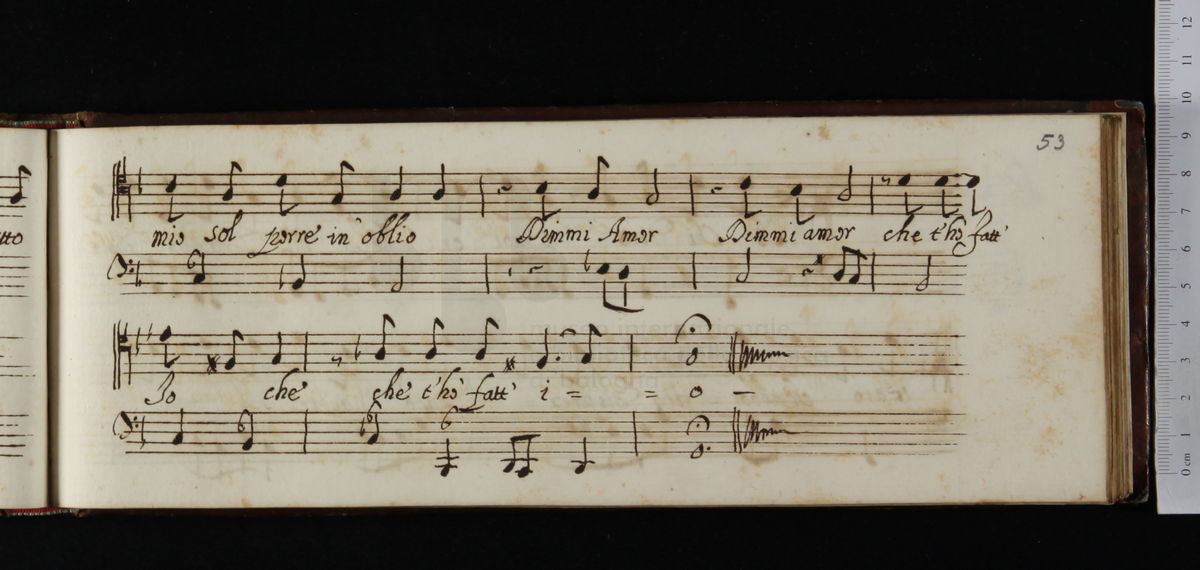 53
tto
mio sol porre in oblio Dimmi Amor Dimmi amor che t'hò fatt'
Io che che t'hò fatt' i = = o —
6
0 cm 1 2 3 4 5 6 7 8 9 10 11 12